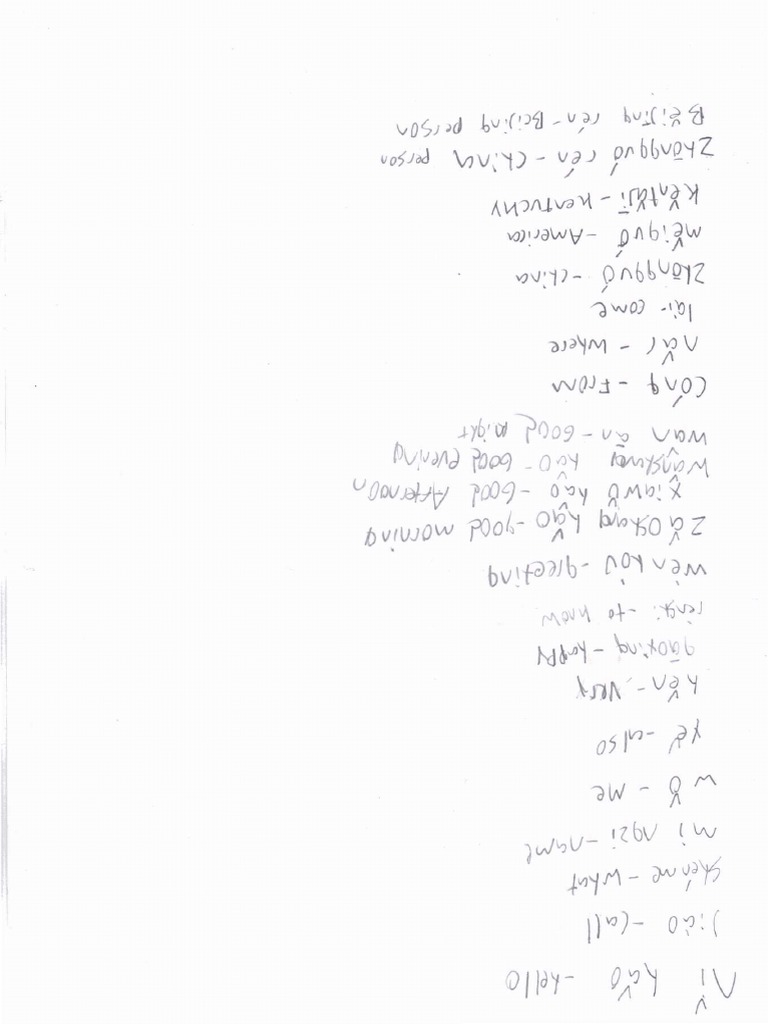 Nǐ hǎo - hello
jiào - call
shénme - what
mí ngzi - name
wǒ - me
yě - also
hěn - very
gāoxìng - happy
rènshi - to know
wèn hòu - greeting
zǎoshang hǎo - good morning
xiawǔ hǎo - Good Afternoon
wǎnshang hǎo - Good evening
wan ān - Good night
cóng - From
nǎr - where
lái - come
zhōngguó - china
měiguó - America
kěntǎjī - kentucky
zhōngguó rén - china person
Běijīng rén - Beijing person